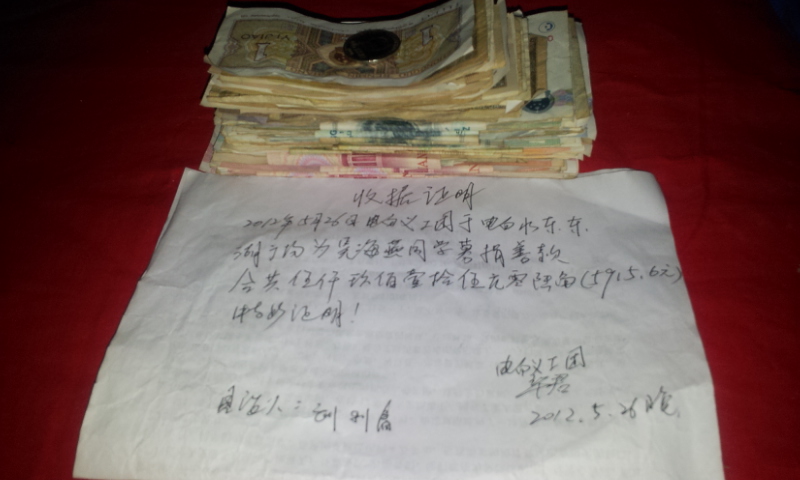 1
YIJIAO
1
收据证明
2012年5月26日电白义工团于电白水东.东
湖广场为吴海燕同学募捐善款
合共伍仟玖佰壹拾伍元零陆角(5915.6元)
特此证明!
电白义工团
2012.5.26晚